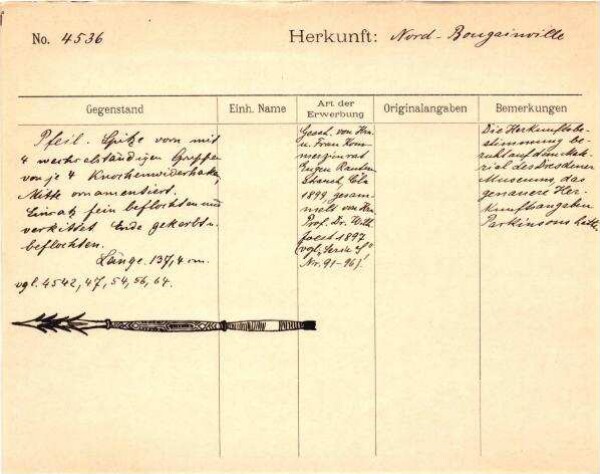 No. 4536 Herkunft: Nord-Bougainville
Gegenstand Einh. Name Art der Erwerbung Originalangaben Bemerkungen
Pfeil. Spitze vorn mit
4 wechselständigen Gruppen
von je 4 Knochenwiderhaken,
Mitte ornamentiert.
Einsatz fein beflochten und
verkittet. Ende gekerbt u.
beflochten.
Länge. 137,4 cm.
vgl. 4542, 47, 54, 56, 64.
Gesch. von Hrn.
u. Frau Kom-
merzienrat
Eugen Rauten-
strauch, Cöln
1899, gesam-
melt von Hrn.
Prof. Dr. Wilh.
Joest 1897
(vgl. "Serie S"
Nr. 91-96)!
Die Herkunftsbe-
stimmung be-
ruht auf dem Mate-
rial des Dresdener
Museums, das
genauere Her-
kunftsangaben
Parkinsons hatte.